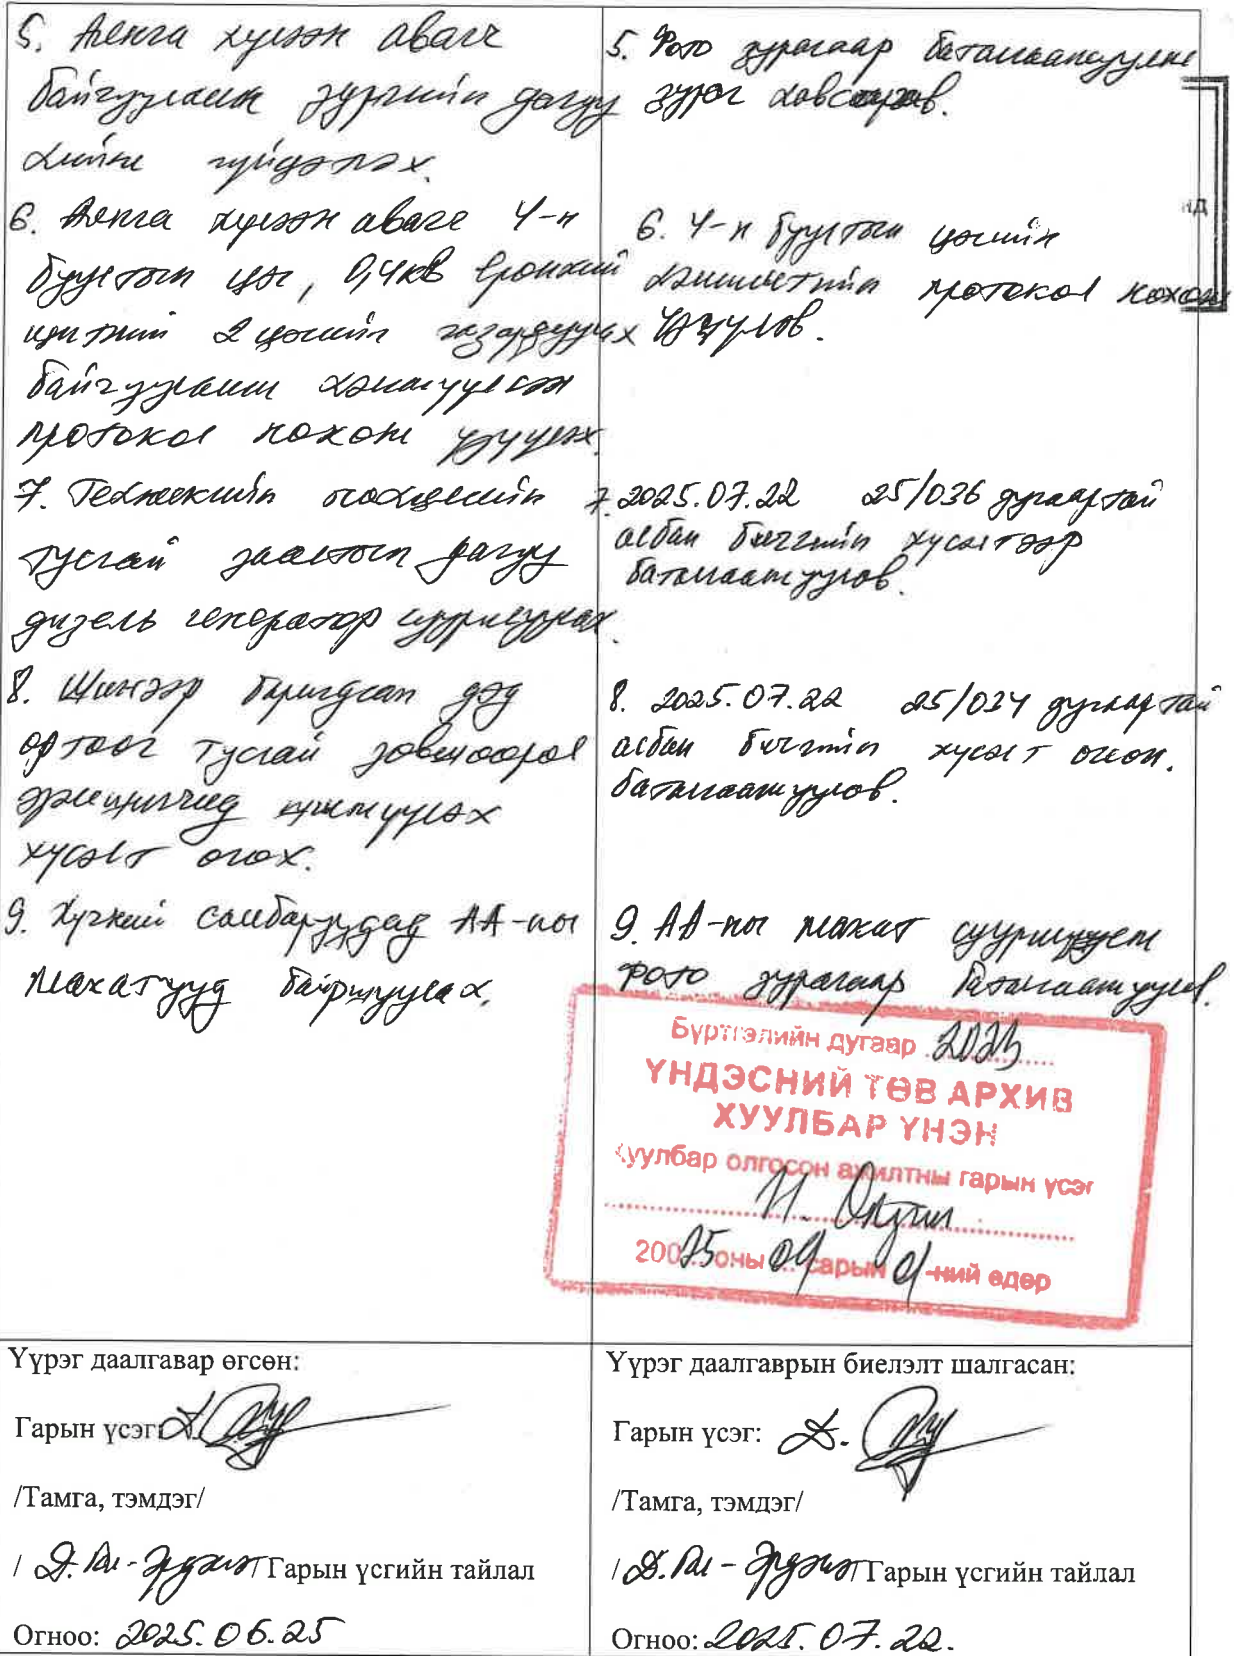 5. Аянга хүлээн авагч
байгууламж зургийн дагуу
хийж гүйцэтгэх.
6. Аянга хүлээн авагч 4-н
буултын цэг, 0,4кВ ерөнхий
щитний 2 цэгийн газардуулах
байгууламж хэмжүүлсэн
протокол нөхөж үзүүлэх.
7. Техникийн нөхцөлийн
тусгай заалтын дагуу
дизель генератор суурилуулах.
8. Шинээр баригдсан дэд
өртөөг тусгай зөвшөөрөл
эзэмшигчид
хүсэлт өгөх.
9. Хүчний самбаруудад АА-ны
плакатууд байршуулах.
5. Фото зургаар баталгаажуулж
зураг хавсаргав.
6. 4-н буултын цэгийн
хэмжилтийн протокол нөхөж
үзүүлэв.
7. 2025.07.22 25/036 дугаартай
албан бичгийн хүсэлтээр
баталгаажуулав.
8. 2025.07.22 25/034 дугаартай
албан бичгийн хүсэлт өгсөн.
баталгаажуулав.
9. АА-ны плакат суурилуулж
фото зургаар баталгаажуулав.
НД
Бүртгэлийн дугаар 2023
ҮНДЭСНИЙ ТӨВ АРХИВ
ХУУЛБАР ҮНЭН
Хуулбар олгосон ажилтны гарын үсэг
20025 оны 09 сарын 01-ний өдөр
Үүрэг даалгавар өгсөн:
Гарын үсэг:
/Тамга, тэмдэг/
/ Д. Гал-Эрдэнэ / Гарын үсгийн тайлал
Огноо: 2025.06.25
Үүрэг даалгаврын биелэлт шалгасан:
Гарын үсэг:
/Тамга, тэмдэг/
/ Д. Гал-Эрдэнэ / Гарын үсгийн тайлал
Огноо: 2025.07.22.